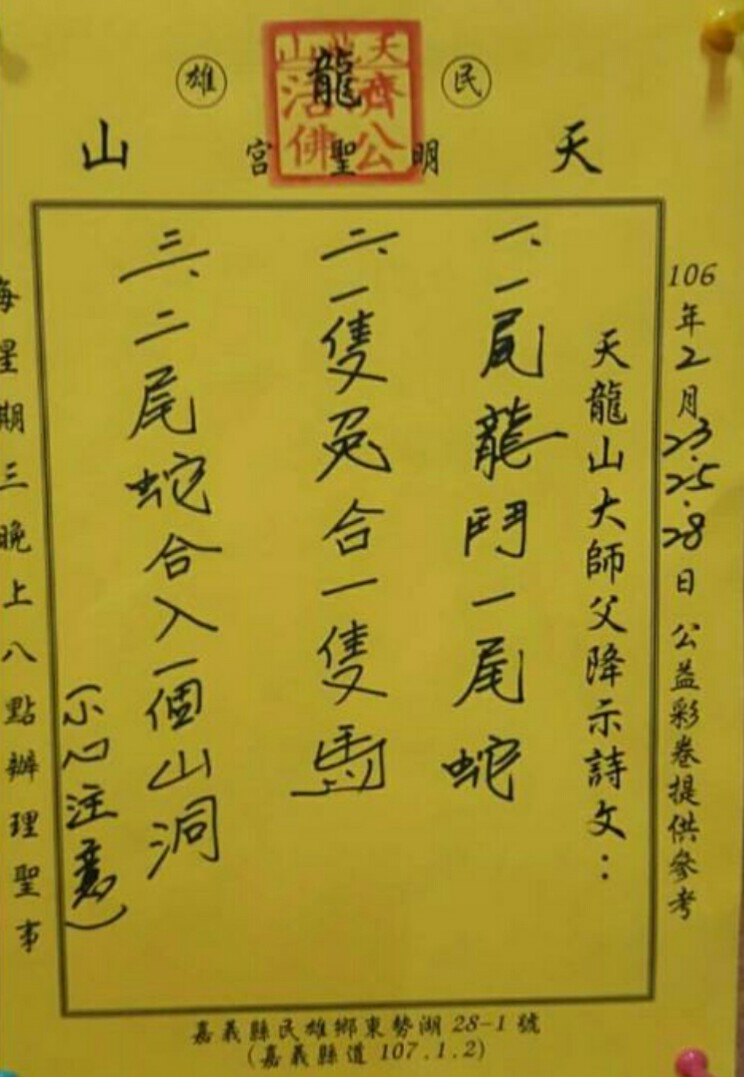 民雄
天龍山
明聖宮
天龍山
濟公
活佛
106年2月23.25.28日 公益彩卷提供參考
天龍山大師父降示詩文：
一、一尾龍鬥一尾蛇
二、一隻兔合一隻馬
三、二尾蛇合入一個山洞
(小心注意)
每星期三晚上八點辦理聖事
嘉義縣民雄鄉東勢湖28-1號
(嘉義縣道107.1.2)